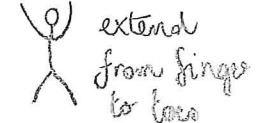 extend
from finger
to toes